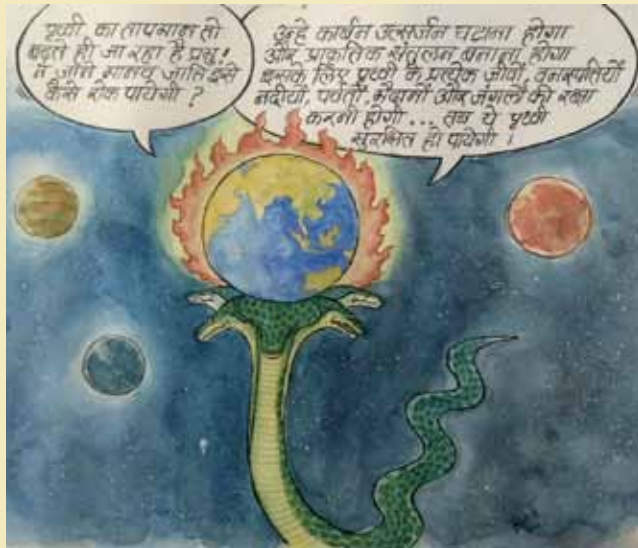 पृथ्वी का तापमान तो
बढ़ते ही जा रहा है प्रभु!
न जाने मानव जाति इसे
कैसे रोक पायेगी ?
उन्हे कार्बन उत्सर्जन घटाना होगा
और प्राकृतिक संतुलन बनाना होगा
इसके लिए पृथ्वी के प्रत्येक जीवों, वनस्पतियों
नदीयों, पर्वतों, मैदानों और जंगलों की रक्षा
करनी होगी ... तब ये पृथ्वी
सुरक्षित हो पायेगी ।